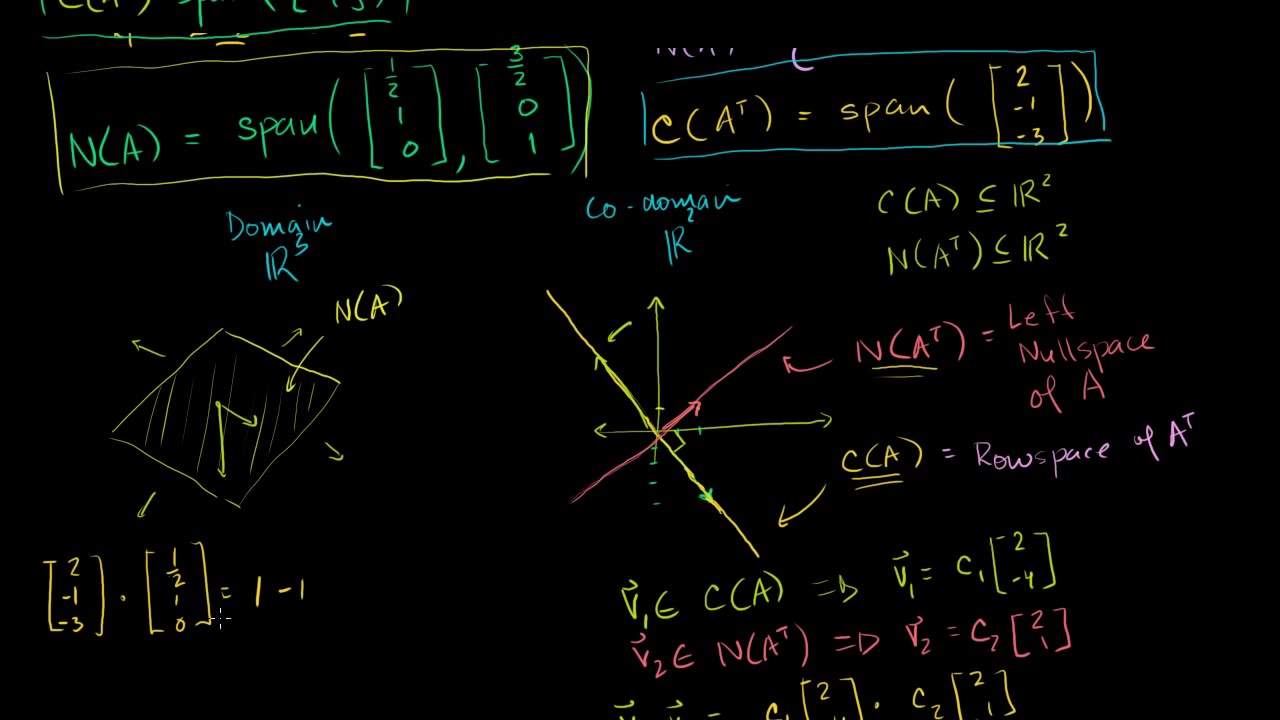 N(A) = span([1/2 1 0], [3/2 0 1])
C(Aᵀ) = span([2 -1 -3])
Domain
ℝ³
Co-domain
ℝ²
C(A) ⊆ ℝ²
N(Aᵀ) ⊆ ℝ²
N(A)
N(Aᵀ) = Left
Nullspace
of A
C(A) = Rowspace of Aᵀ
[2 -1 -3] · [1/2 1 0] = 1 - 1
v⃗₁ ∈ C(A) ⇒ v⃗₁ = c₁[2 -4]
v⃗₂ ∈ N(Aᵀ) ⇒ v⃗₂ = c₂[2 1]
= c₁[2 -4] · c₂[2 1]